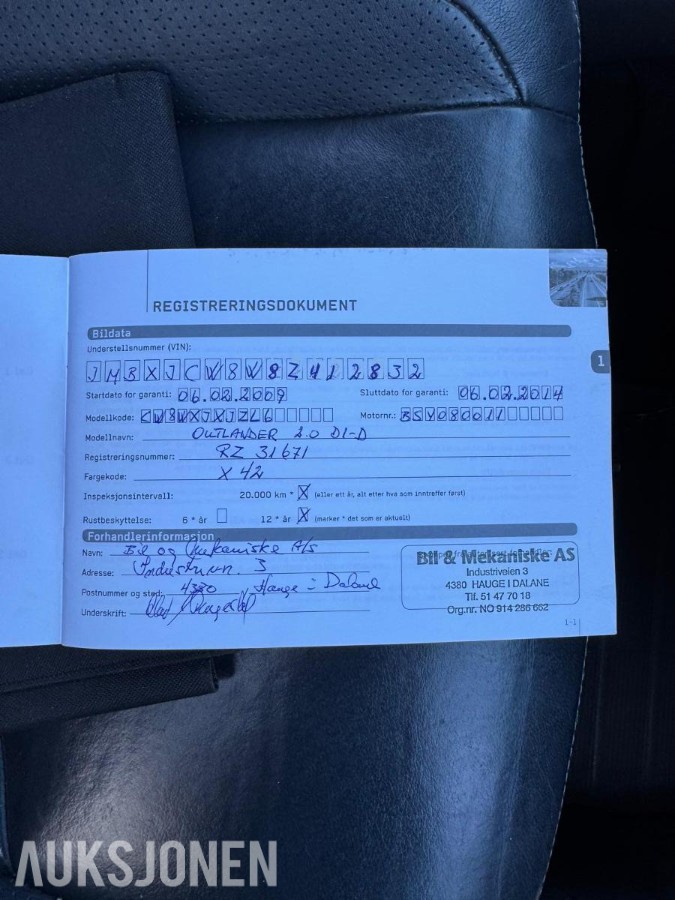 REGISTRERINGSDOKUMENT
Bildata
1
Understellsnummer (VIN):
JMBXJCW8W8Z412832
Startdato for garanti: 06.02.2009 Sluttdato for garanti: 06.02.2014
Modellkode: CW8WXJXJZL6 Motornr.: BSY080011
Modellnavn: OUTLANDER 2.0 DI-D
Registreringsnummer: RZ 31671
Fargekode: X42
Inspeksjonsintervall: 20.000 km * X (eller ett år, alt etter hva som inntreffer først)
Rustbeskyttelse: 6 * år 12 * år X (merker * det som er aktualt)
Forhandlerinformasjon
Navn: Bil og Mekaniske A/S
Adresse: Industrivn. 3
Postnummer og sted: 4380 Hauge i Dalane
Underskrift:
Bil & Mekaniske AS
Industriveien 3
4380 HAUGE I DALANE
Tlf. 51 47 70 18
Org.nr. NO 914 286 662
1-1
AUKSJONEN